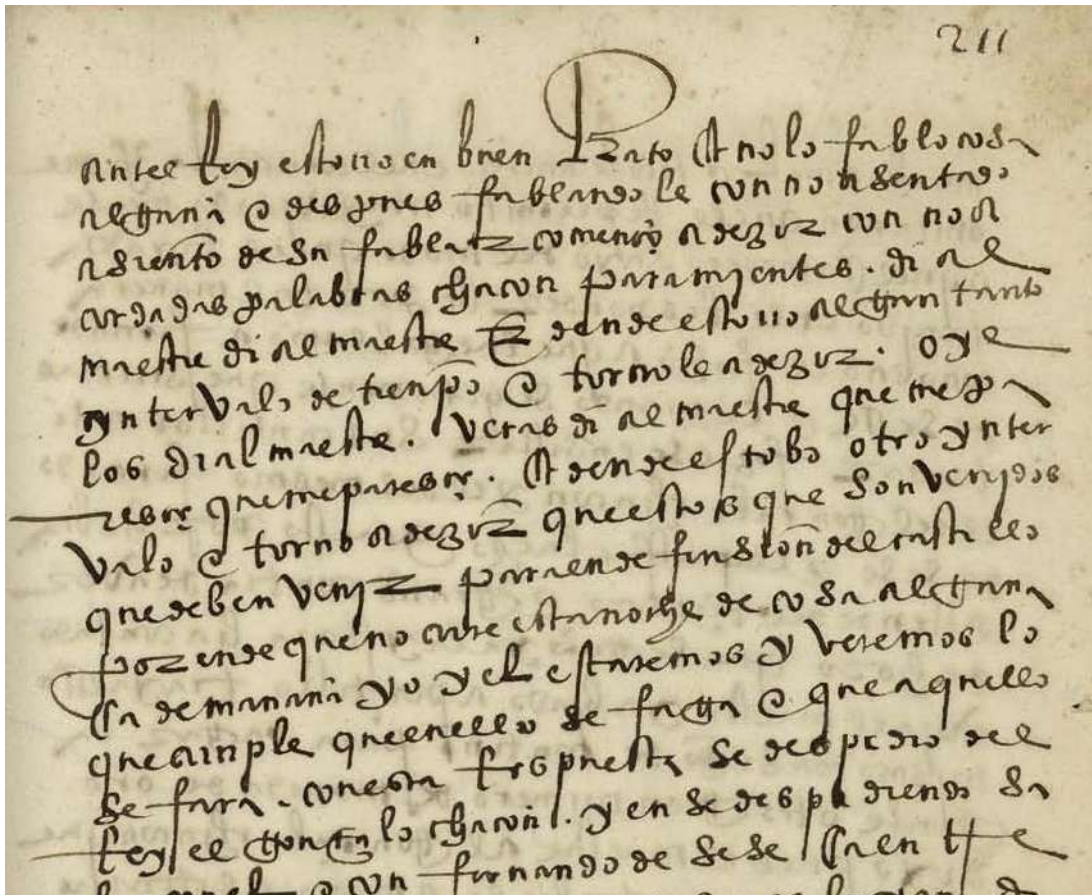 211
ante el Rey estouo en buen Rato q̃ no lo fablo cosa
alguna e despues fablandole con no asentado
asiento de su fablar començo a dezir con no a
cordadas palabras chacon paramientes. di al
maestre di al maestre E dende estouo algun tanto
yntervalo de tienpo e tornole a dezir. oye
los di al maestre. veras di al maestre que me pa
resçe que me paresçe. E dende estobo otro ynter
valo e torno a dezir que estos que son venidos
que deben venir para ende funsion del castillo
por ende que no cure esta noche de cosa alguna
ca de mañana yo y el estaremos y veremos lo
que cunple que en ello se faga e que aquello
se fara. con esta respuesta se despidio del
Rey el gonçalo chacon. y en se despidiendo sa
e con fernando de sese